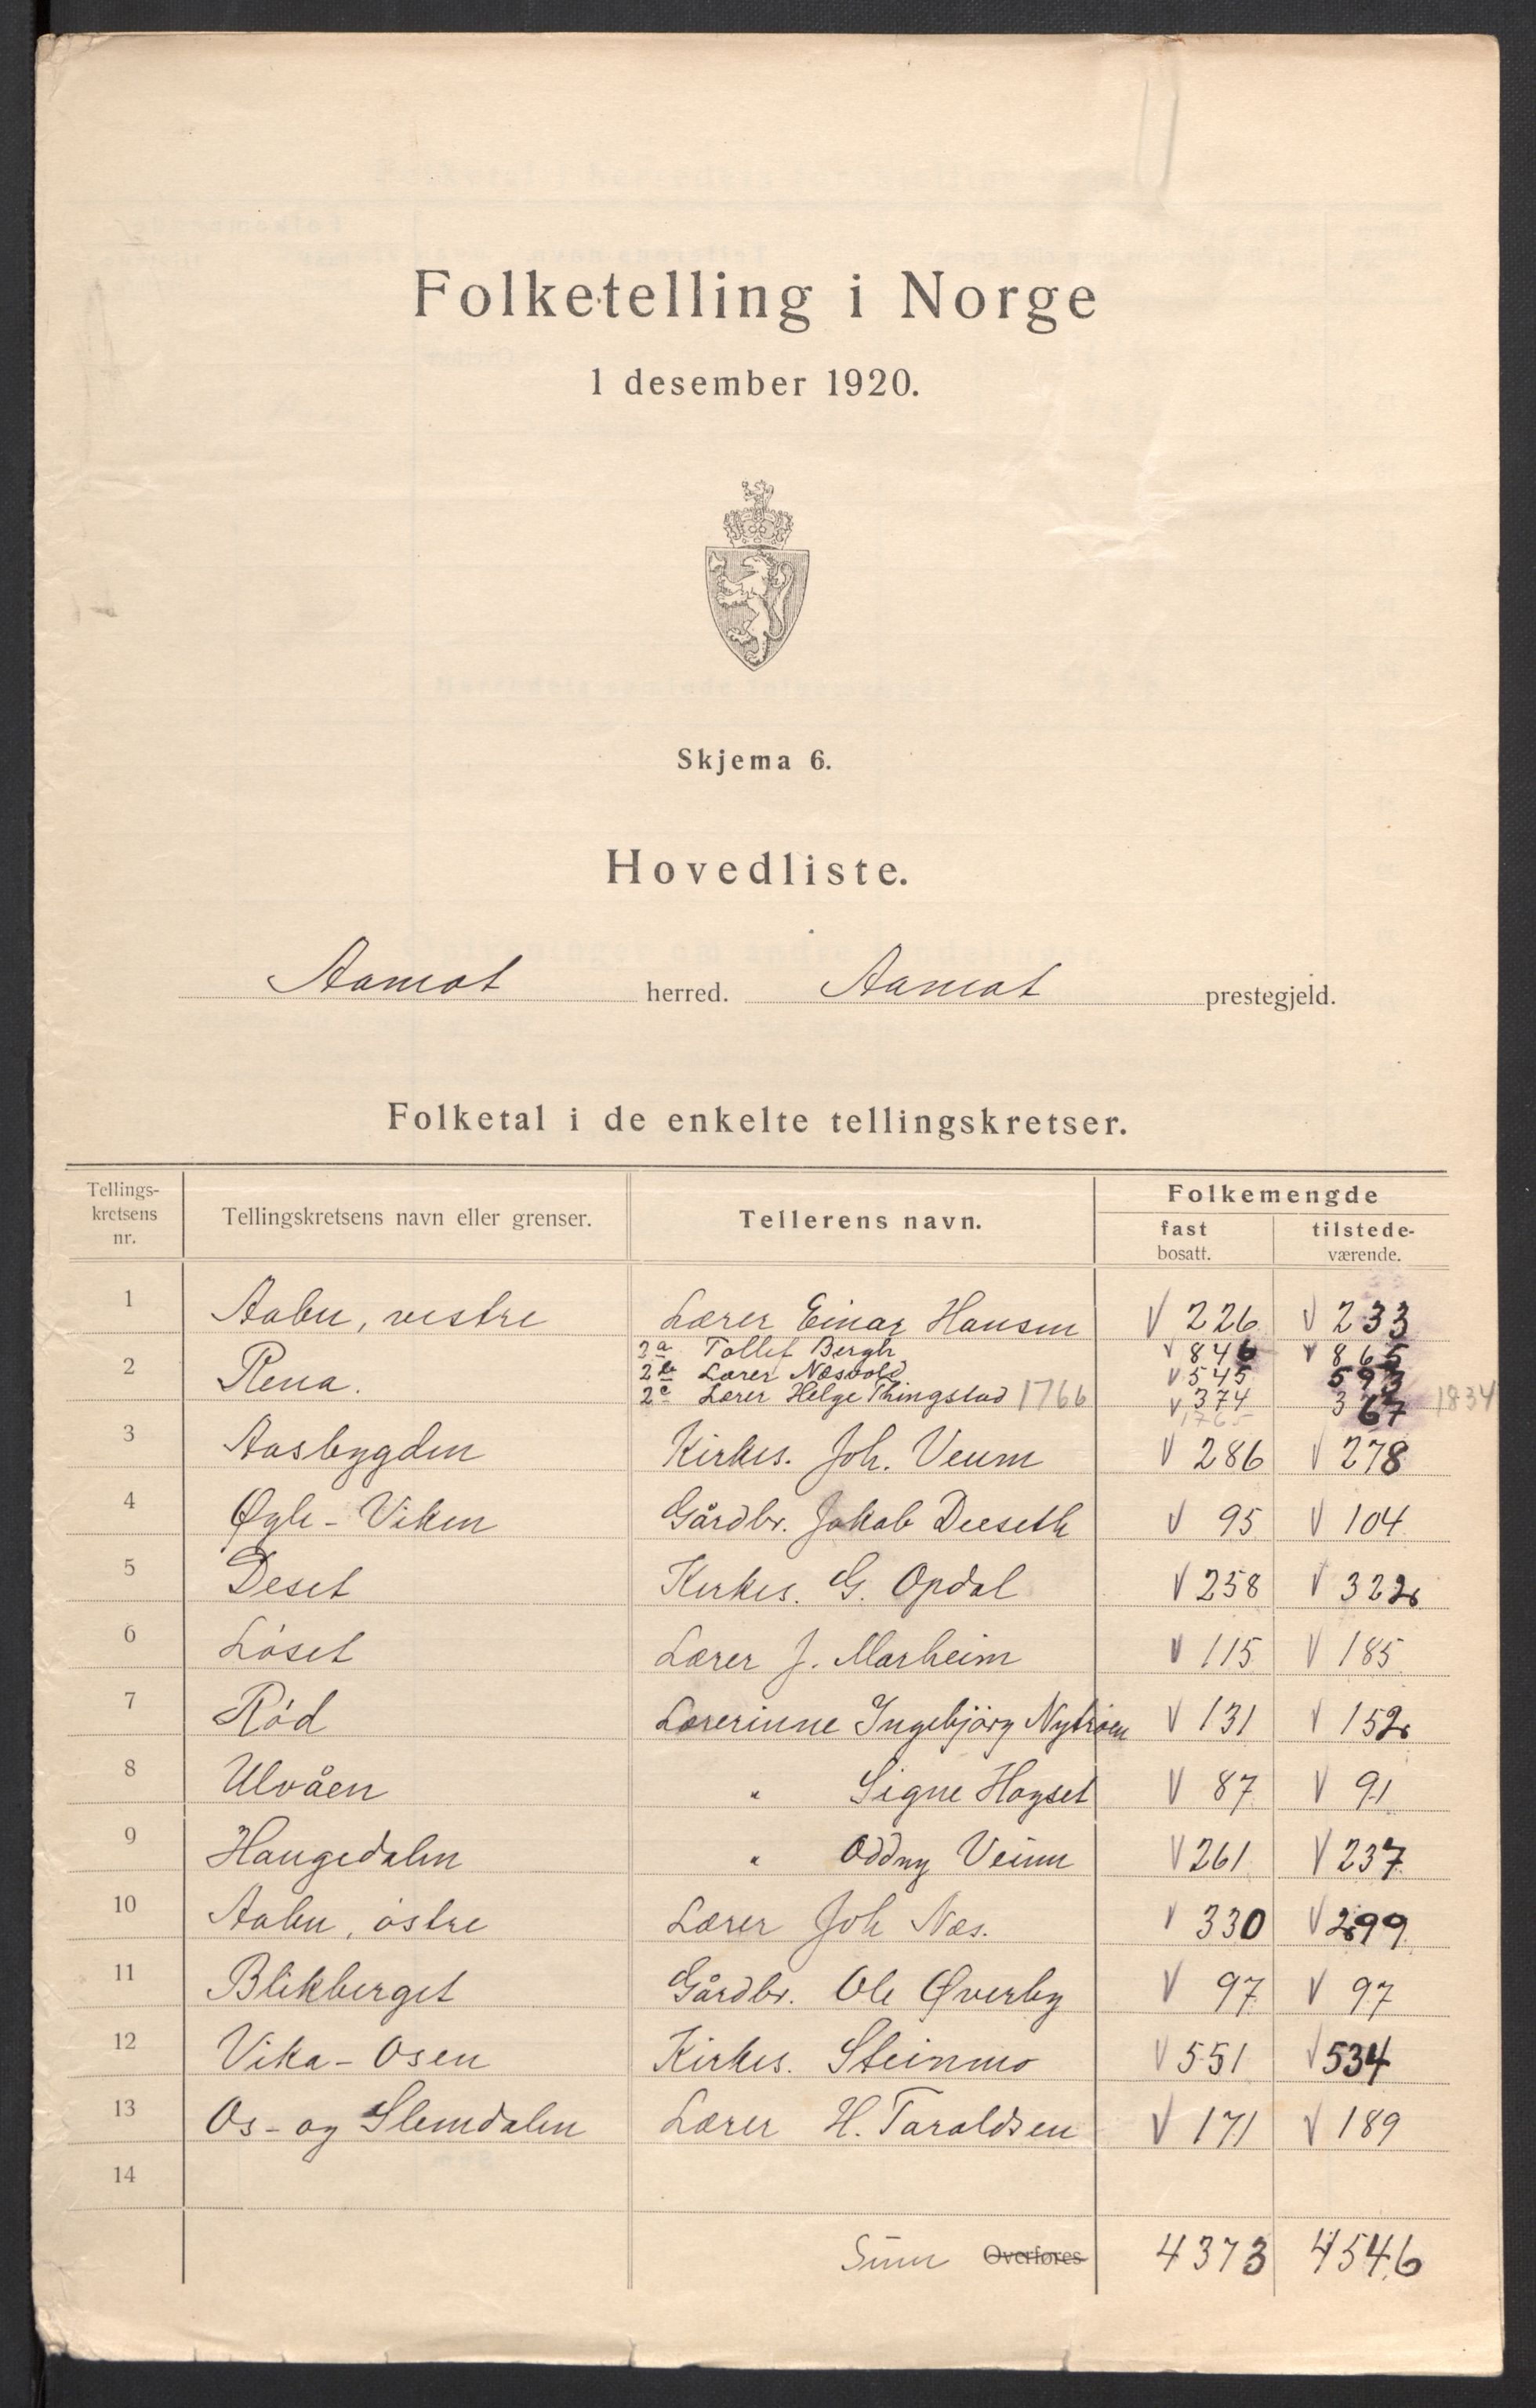 Folketelling i Norge
1 desember 1920.
Skjema 6.
Hovedliste.
Aamot herred. Aamot prestegjeld.
Folketal i de enkelte tellingskretser.
Tellings-kretsens nr. Tellingskretsens navn eller grenser. Tellerens navn. Folkemengde
fast bosatt. tilstede-værende.
1 Aabu, vestre Lærer Einar Hansen V 226 V 233
2a Tollef Bergh V 846 V 865
2 Rena. 2b Lærer Næsvold V 545 593
2c Lærer Helge Thingstad 1766 V 374 367 1834
1765
3 Aasbygden Kirkes. Joh. Veum V 286 V 278
4 Øgle-Viken Gårdbr. Jakob Deeseth V 95 V 104
5 Deset Kirkes. G. Opdal V 258 V 322
6 Løset Lærer J. Marheim V 115 V 185
7 Rød Lærerinne Ingebjørg Nytrøen V 131 V 152
8 Ulvåen " Signe Høyset V 87 V 91
9 Haugedalen " Oddny Veum V 261 V 237
10 Aabu, østre Lærer Joh Næs. V 330 V 299
11 Blikberget Gårdbr. Ole Øverby V 97 V 97
12 Vika-Osen Kirkes. Steinmo V 551 V 534
13 Os- og Slemdalen Lærer H. Taraldsen V 171 V 189
14
Sum Overføres 4373 4546